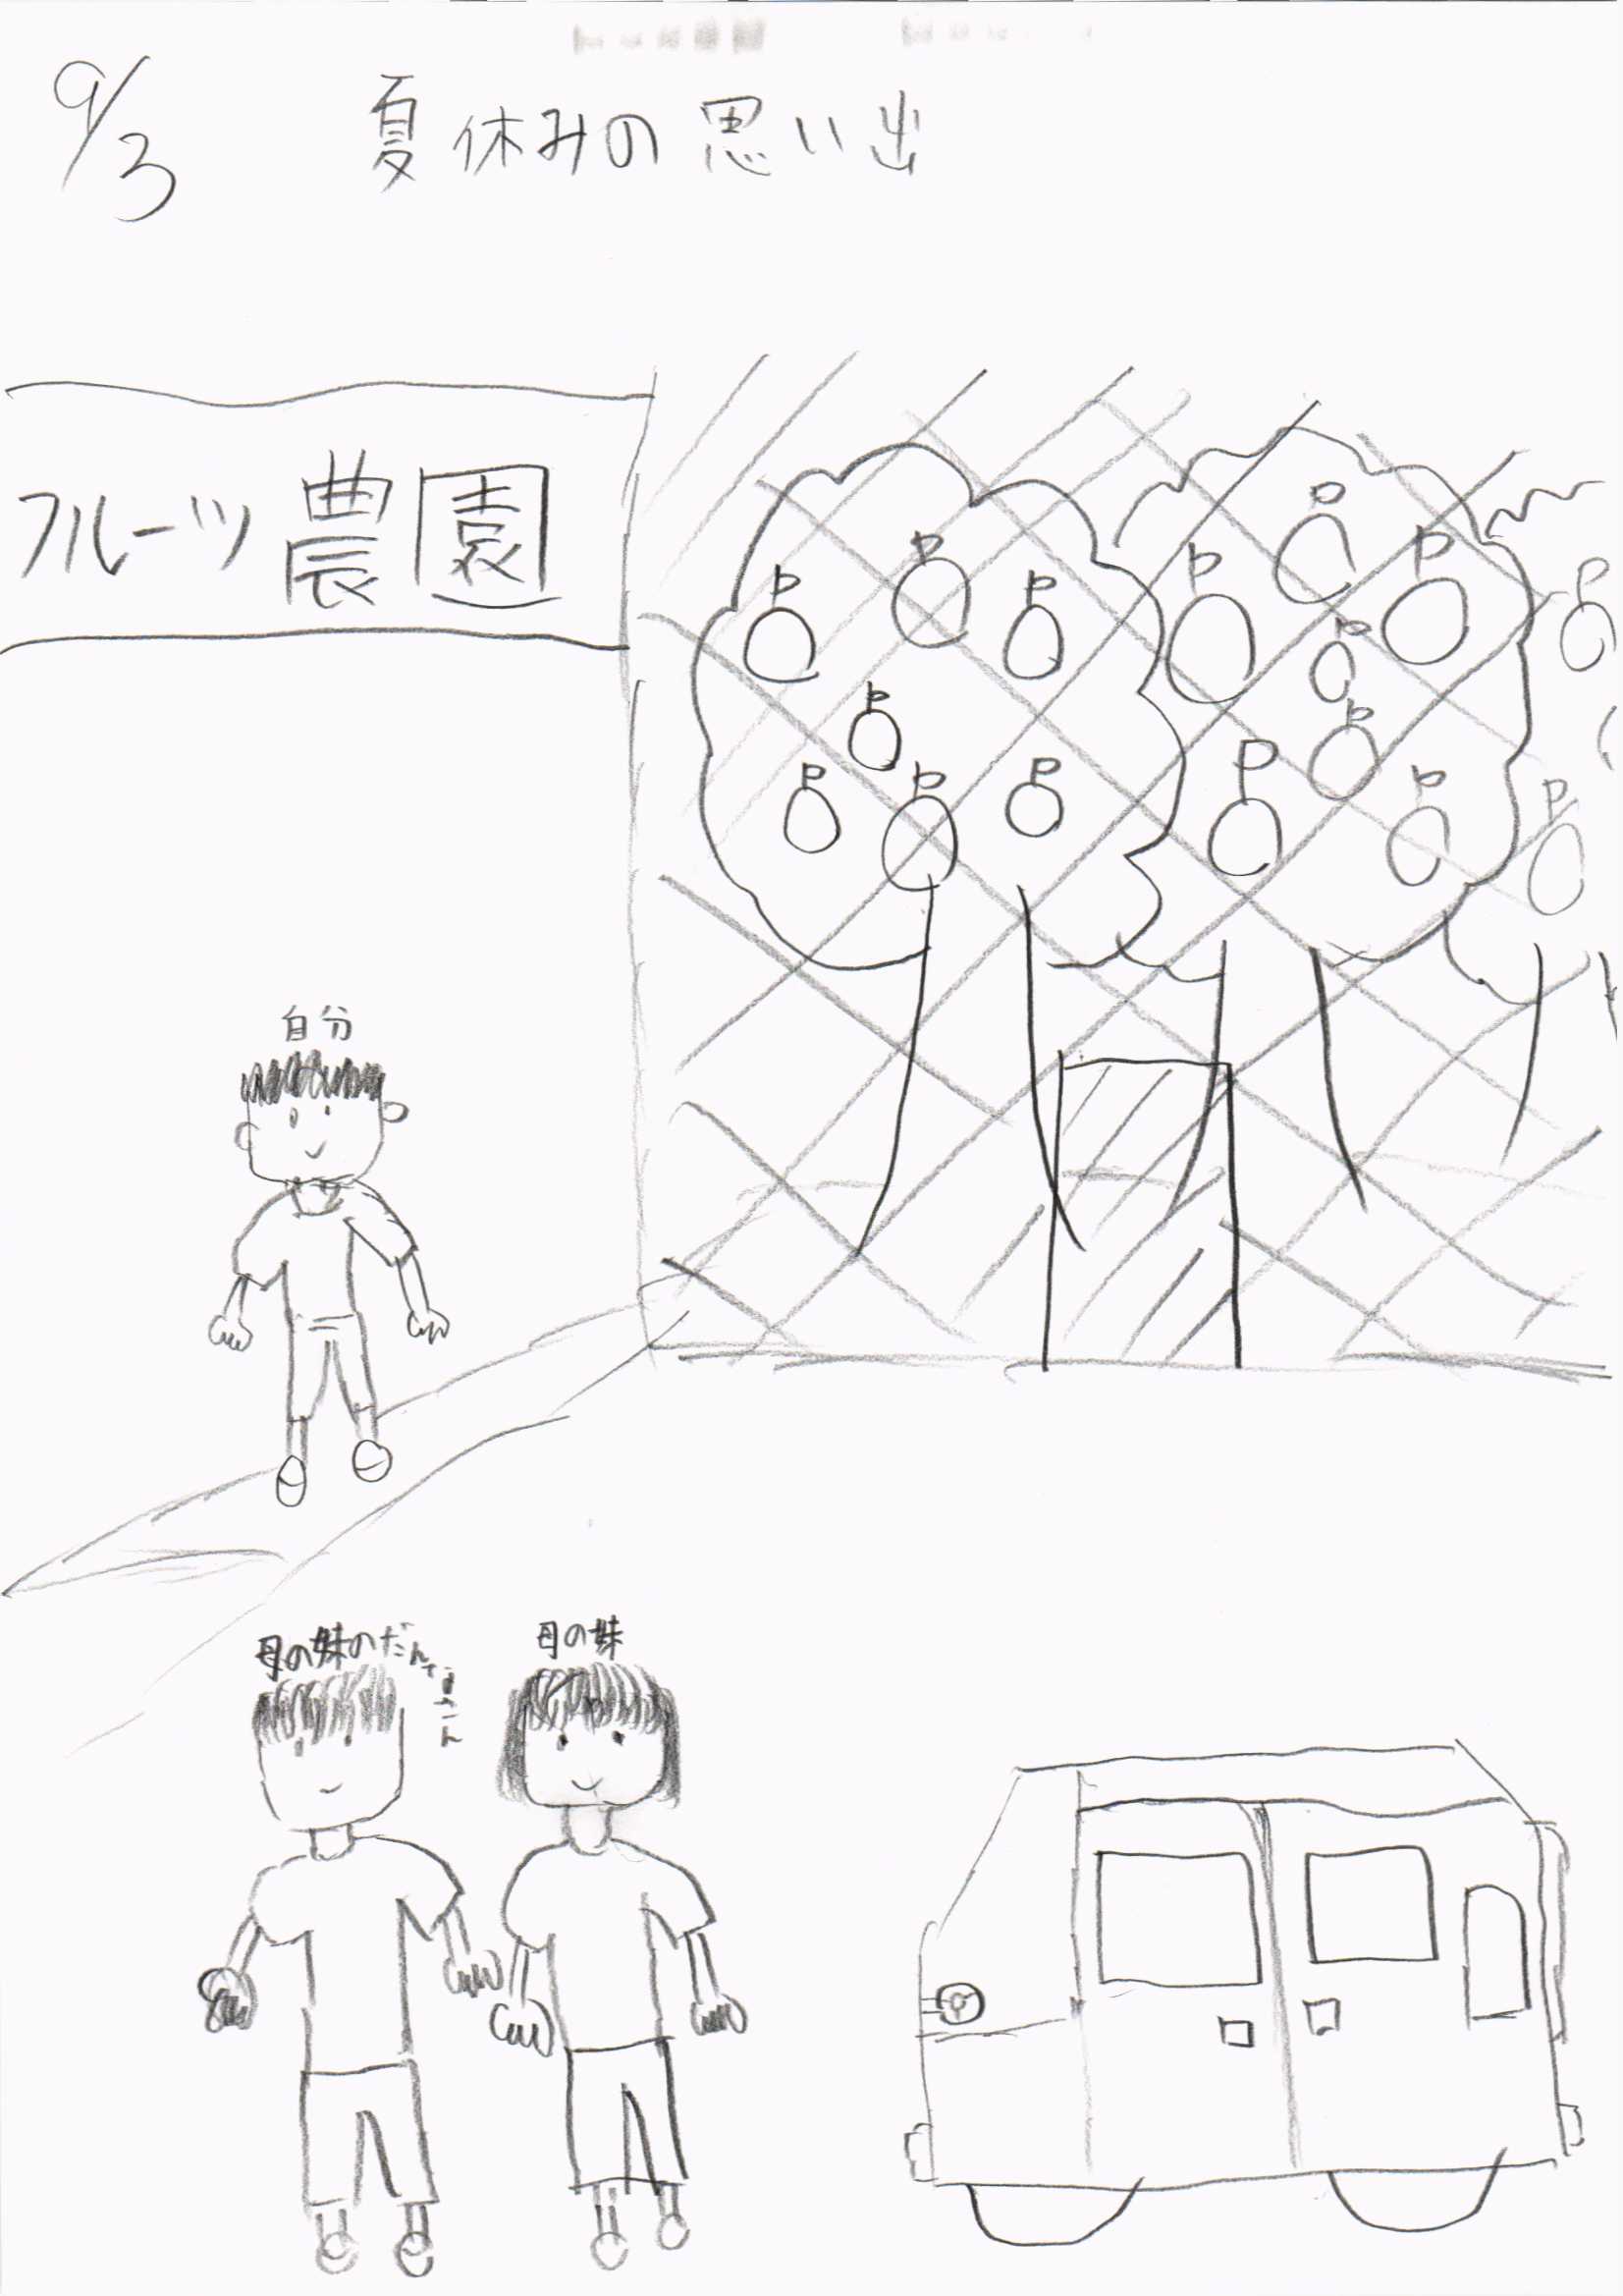 9/3 夏休みの思い出
フルーツ農園
自分
母の妹のだんなさん
母の妹